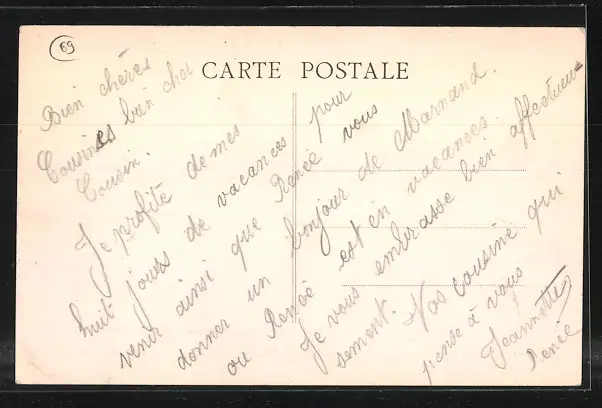 69
CARTE POSTALE
Bien chères
Cousines bien cher
Cousin.
Je profite de mes
huit jours de vacances pour
venir ainsi que Renée vous
donner un bonjour de Marnand.
ou Renée est en vacances.
Je vous embrasse bien affectueu
sement. Vos cousine qui
pense à vous
Jeannette
Renée